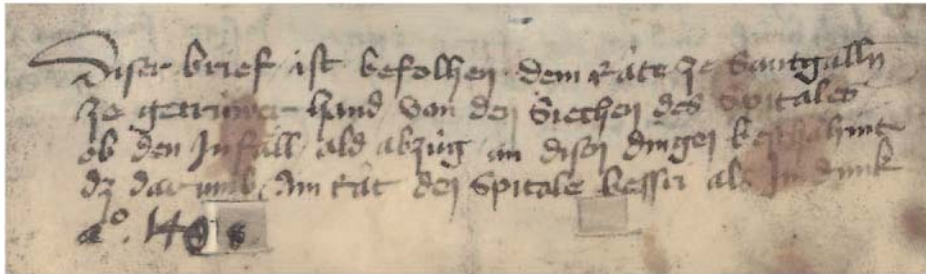 Diser brief ist befolhen dem rate ze Santgalln
ze getruwer hand von den Siechen des Spitales
ob den Infall ald abzug an disen dingen beschähint
dz dar umb ain rat den Spitale besser als In dunk
aº. 14